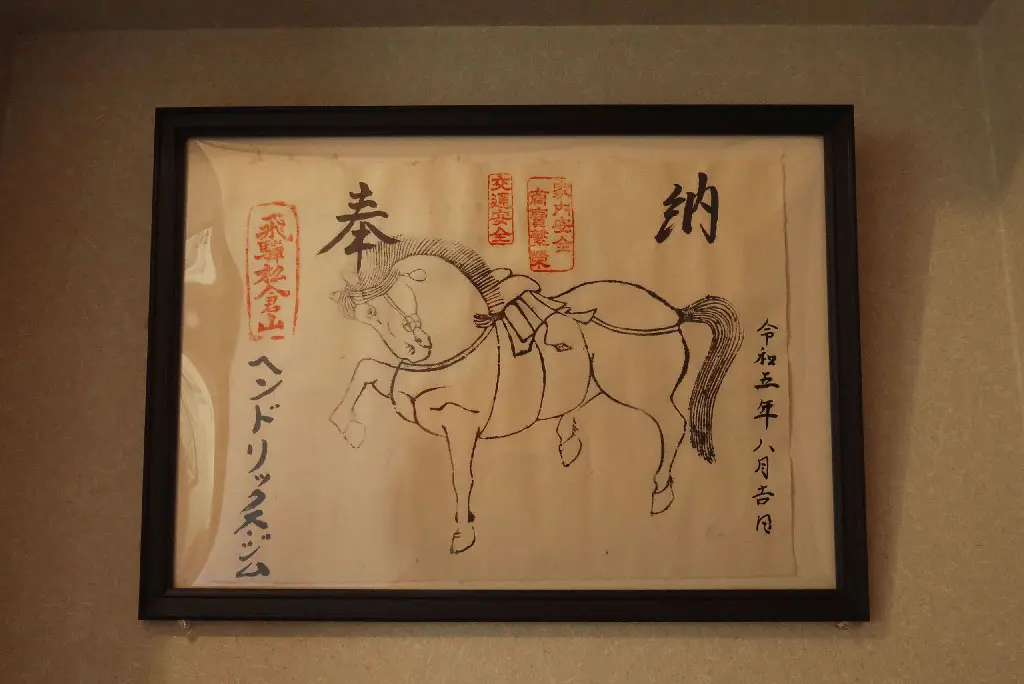 奉
納
交通安全
家内安全
商賣繁榮
飛騨松倉山
ヘンドリックスジム
令和五年八月吉日